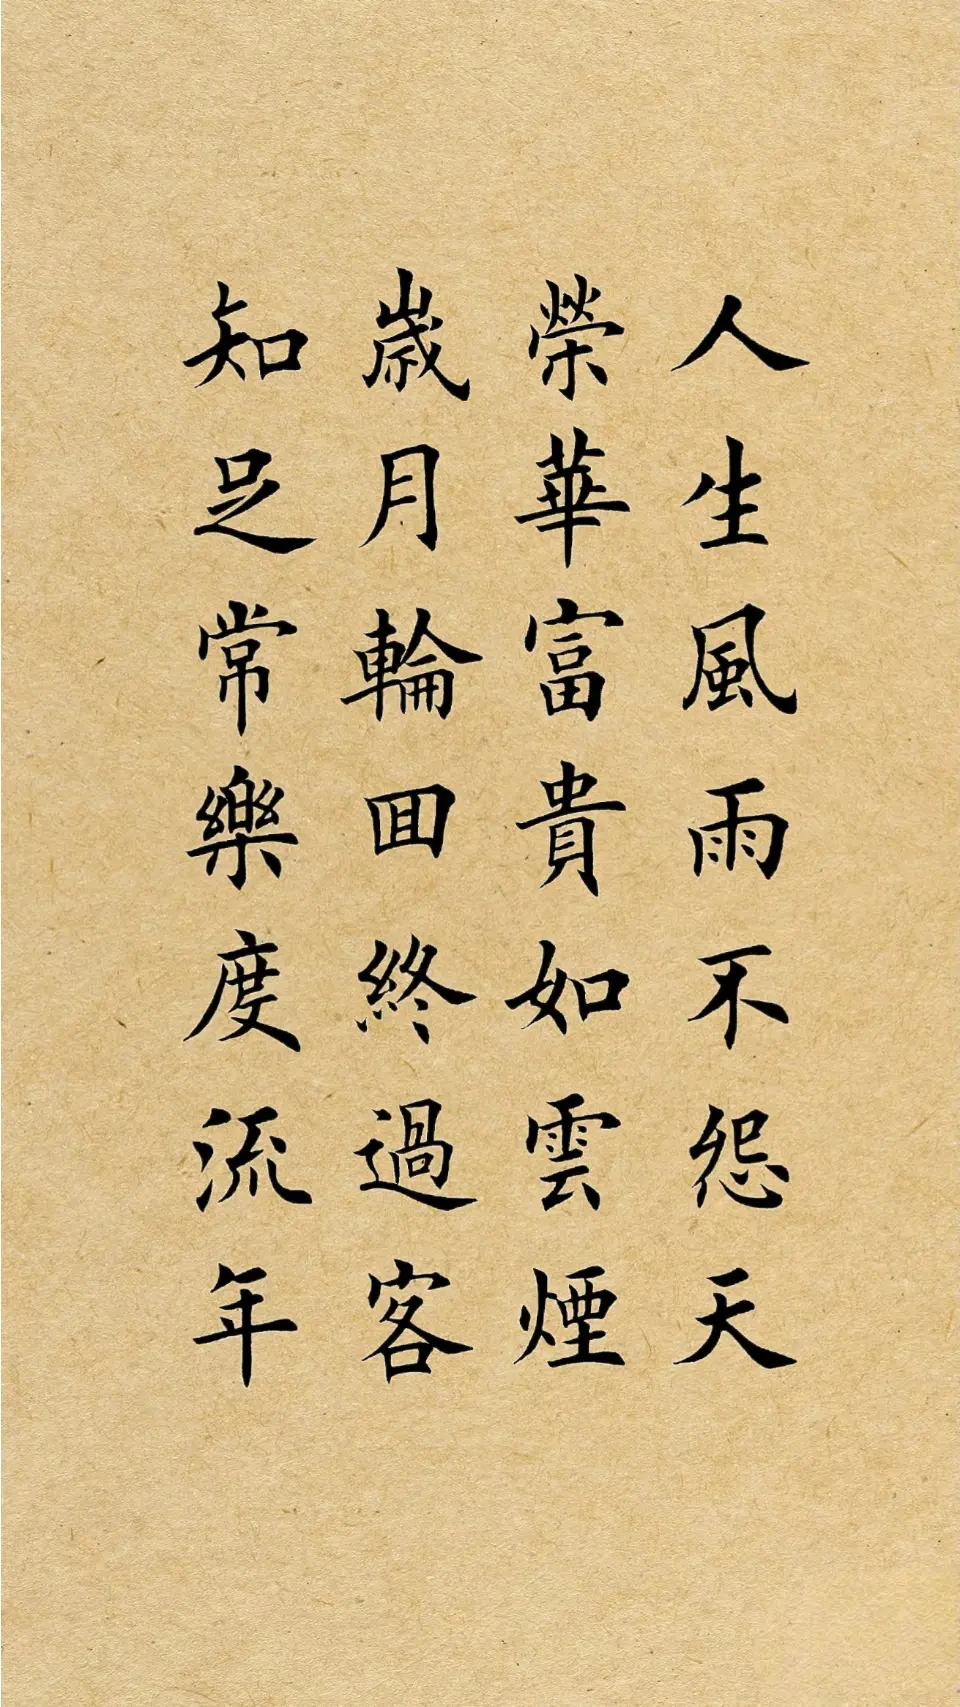 人生風雨不怨天
榮華富貴如雲煙
歲月輪回終過客
知足常樂度流年